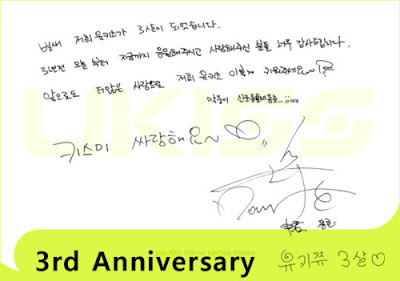 벌써 저희 유키스가 3살이 되었습니다.
3년전 오늘 부터 지금까지 응원해주시고 사랑해주신 분들 너무 감사드립니다.
앞으로도 더많은 사랑으로 저희 유키스 이쁘게 키워주세요~!
막둥이
키스미 싸랑해요~♡
UKISS
3rd Anniversary
유키쮸 3살♡